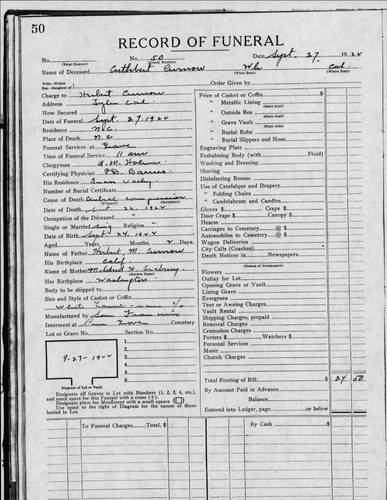 50
RECORD OF FUNERAL
No. No. 50 Date Sept. 27, 1922
(Total Number) (Yearly Number)
Name of Deceased Cuthbert Curnow Wh Cal.
(What Race) (Where Born)
Charge to Herbert Curnow
Address Cal.
How Secured
Date of Funeral Sept. 27 1922
Residence N.C.
Place of Death N.C.
Funeral Services at Grave
Time of Funeral Service 11 am
Clergyman
Certifying Physician
His Residence Grass Valley
Number of Burial Certificate
Cause of Death compression
(Primary) (Secondary)
Date of Death 1922
Occupation of the Deceased
Single or Married Sing Religion
Date of Birth Sept 24, 1922
Aged Years Months 2 Days.
Name of Father Herbert M. Curnow
His Birthplace Calif
Name of Mother Mildred H.
(Maiden Name)
Her Birthplace Washington
Body to be shipped to
Size and Style of Casket or Coffin
White
Manufactured by San Francisco
Interment at Pine Grove Cemetery
Lot or Grave No. Section No.
1 2 3 4
9-27-1922
Diagram of Lot or Vault
Designate all Graves in Lot with Numbers (1, 2, 3, 4, etc.),
and mark space for this Funeral with a cross (+).
Designate place for Monument with a small square
Use space to the right of Diagram for the names of those
buried in Lot.
Order Given by
Price of Casket or Coffin $
" Metallic Lining
(State kind)
" Outside Box
(State kind)
" Grave Vault
(State kind)
" Burial Robe
" Burial Slippers and Hose
Engraving Plate
Embalming Body (with Fluid)
Washing and Dressing
Shaving
Disinfecting Rooms
Use of Catafalque and Drapery
" Folding Chairs
" Candelabrum and Candles
Gloves $ Crape $
Door Crape $ Canopy $
Carriages to Cemetery @ $
Automobiles to Cemetery @ $
Wagon Deliveries
City Calls (Coaches)
Death Notices in Newspapers
(Names of Newspapers)
Flowers
Outlay for Lot
Opening Grave or Vault
Lining Grave
Evergreens
Tent or Awning Charges
Vault Rental
Shipping Charges, prepaid
Removal Charges
Cremation Charges
Porters $ Watchers $
Personal Services
Music
Church Charges
Total Footing of Bill $ 27 50
By Amount Paid in Advance
Balance
Entered into Ledger, page or below
To Funeral Charges, Total, $ By Cash $